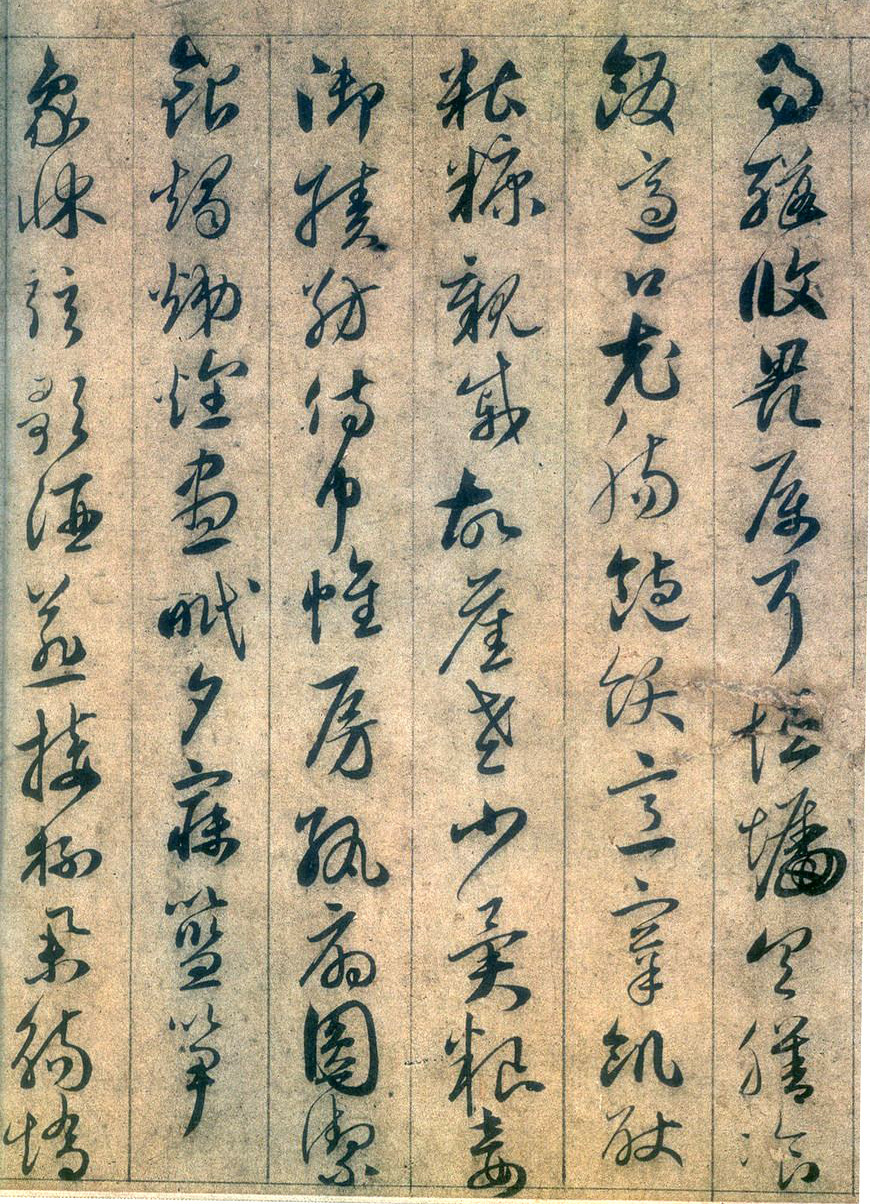 易輶攸畏屬耳垣牆具膳飡
飯適口充腸飽飫烹宰飢厭
糟糠親戚故舊老少異粮妾
御績紡侍巾帷房紈扇圓潔
銀燭煒煌晝眠夕寐藍筍
象牀弦歌酒宴接杯舉觴矯